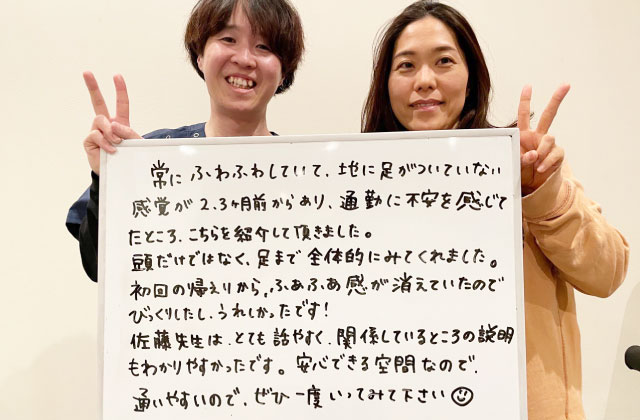 常にふわふわしていて、地に足がついていない
感覚が2.3ヶ月前からあり、通勤に不安を感じて
たところ、こちらを紹介して頂きました。
頭だけではなく、足まで全体的にみてくれました。
初回の帰えりから、ふあふあ感が消えていたので
びっくりしたし、うれしかったです!
佐藤先生は、とても話やすく、関係しているところの説明
もわかりやすかったです。安心できる空間なので、
通いやすいので、ぜひ一度いってみて下さい☺